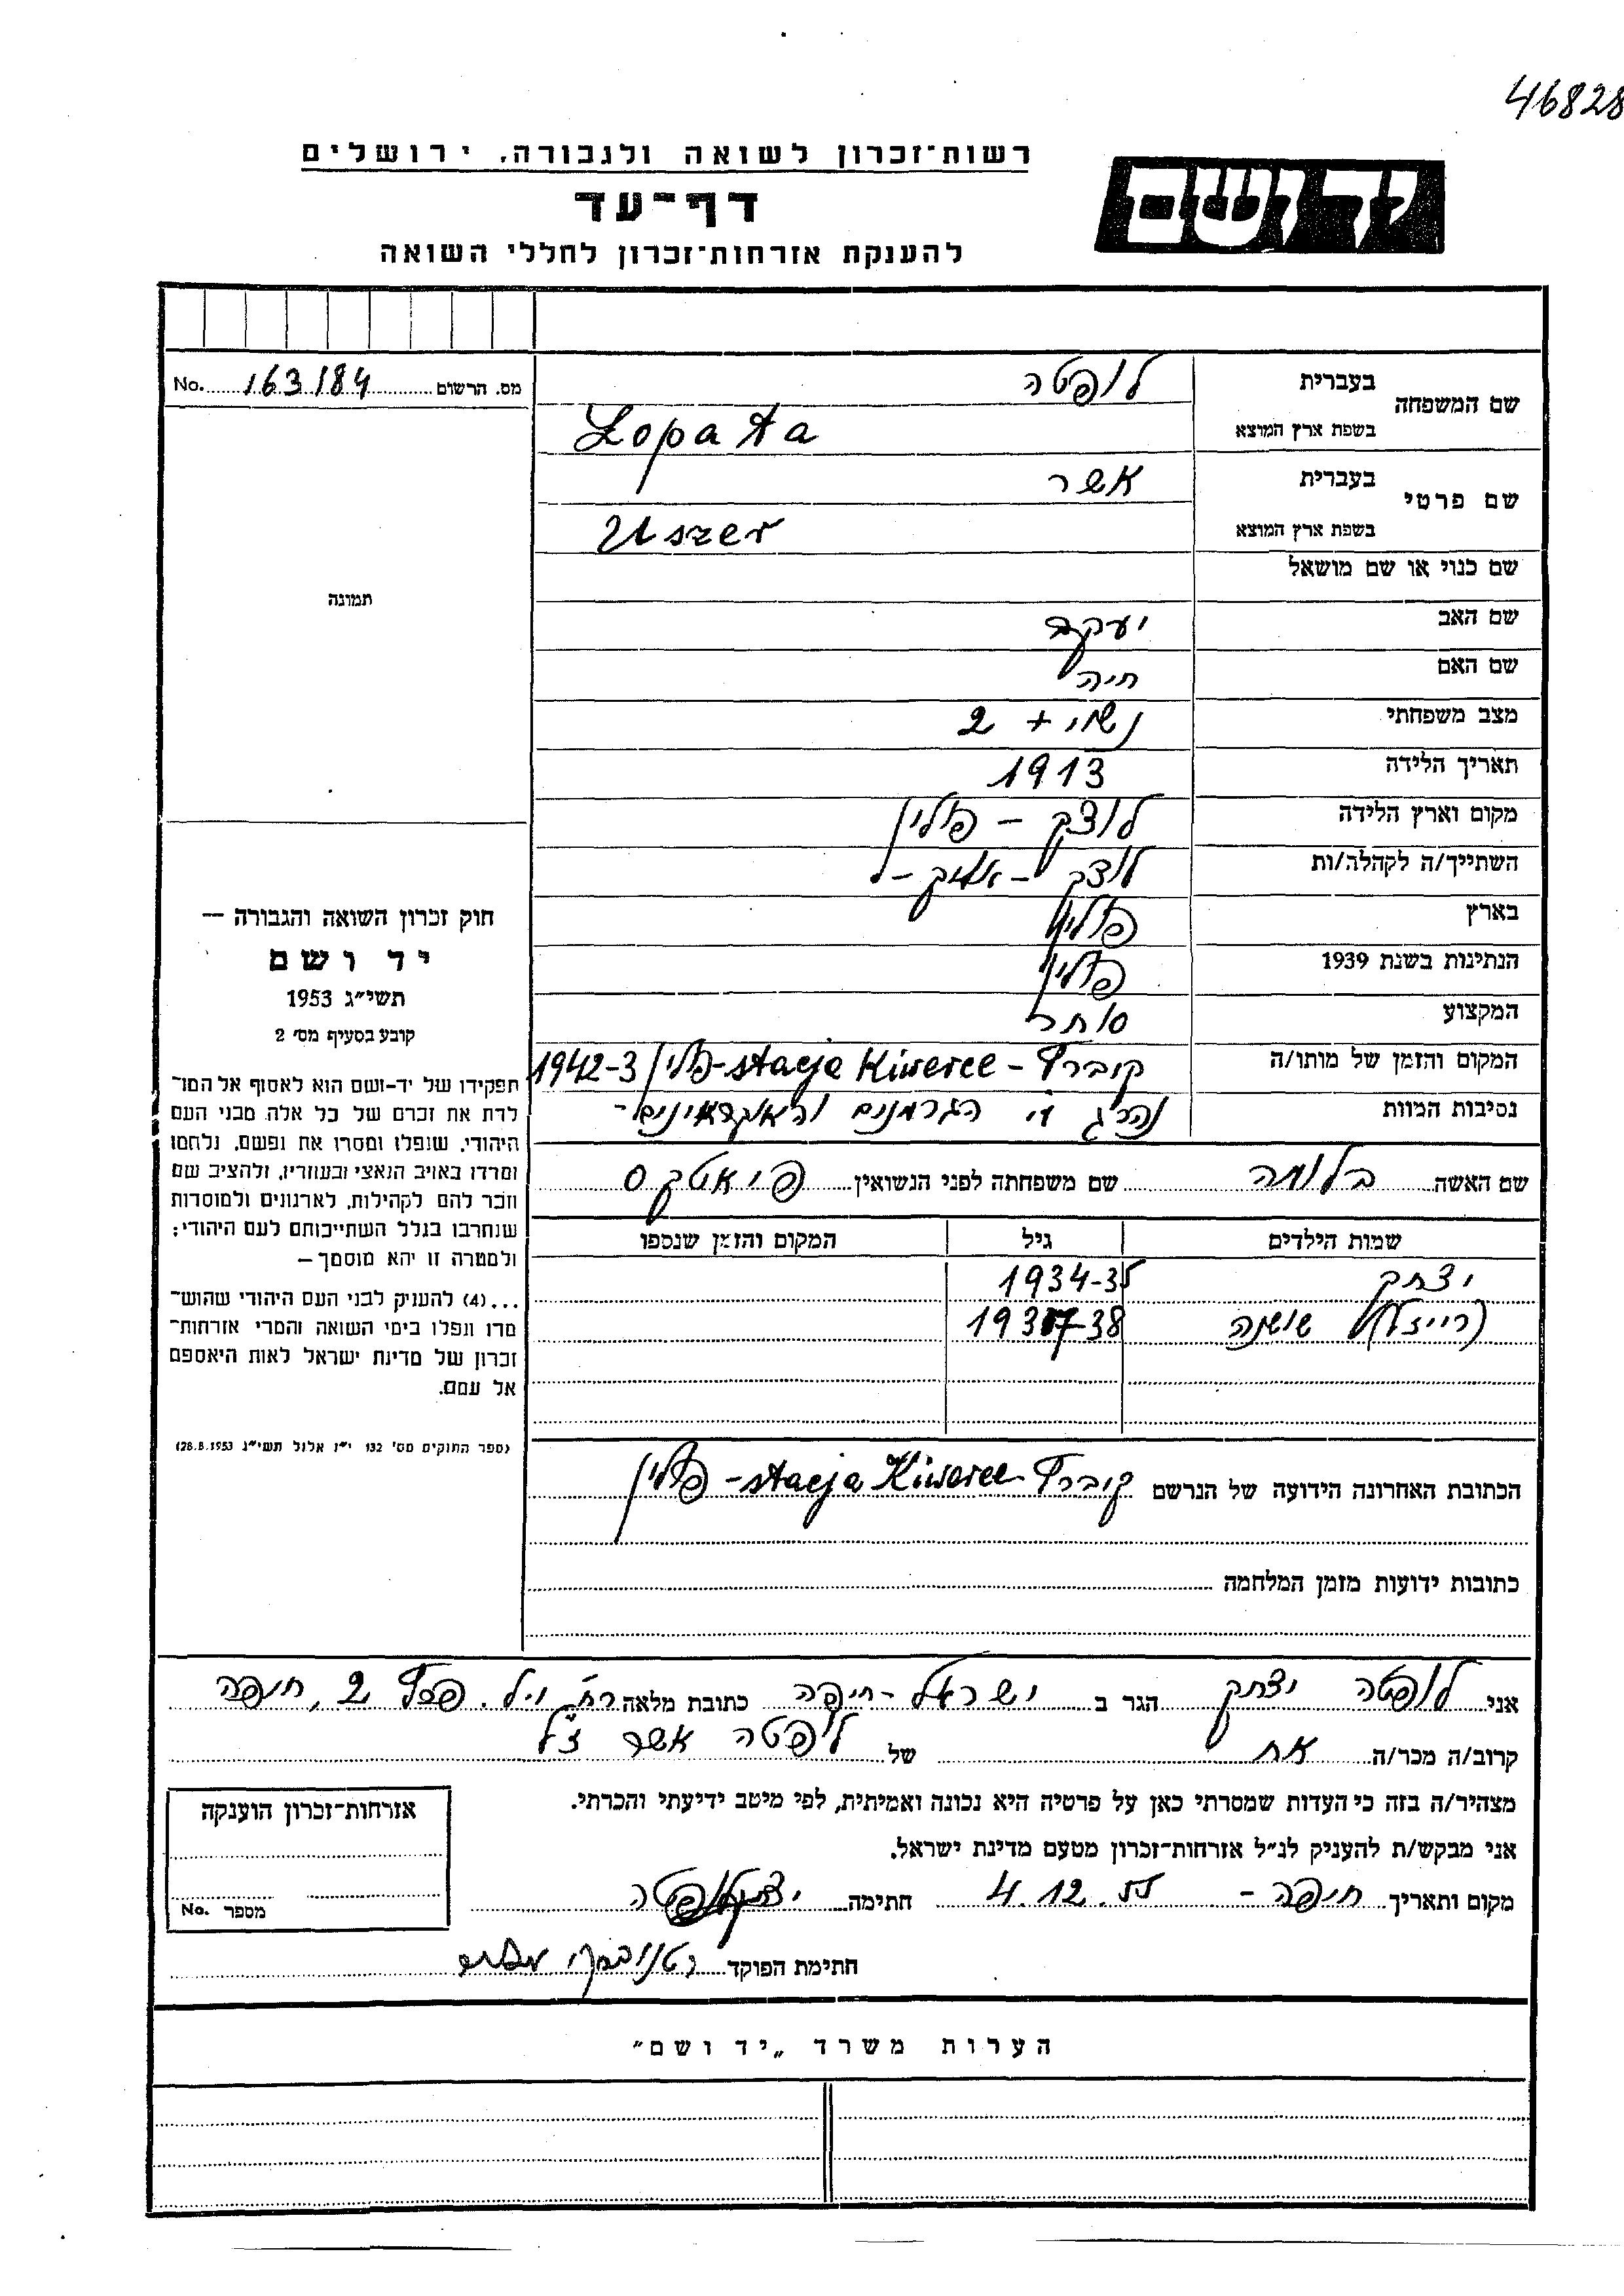 46828
רשות־זכרון לשואה ולגבורה, ירושלים
דף־עד
להענקת אזרחות־זכרון לחללי השואה
יד ושם
No. 163184 מס. הרשום
שם המשפחה בעברית לופטה
בשפת ארץ המוצא Łopata
שם פרטי בעברית אשר
בשפת ארץ המוצא Uszer
שם כנוי או שם מושאל
שם האב יעקב
שם האם חיה
מצב משפחתי נשוי + 2
תאריך הלידה 1913
מקום וארץ הלידה לוצק - פולין
השתייך/ה לקהלה/ות לוצק
בארץ פולין
הנתינות בשנת 1939 פולין
המקצוע סוחר
המקום והזמן של מותו/ה קיברץ - stacja Kiwerce - פולין 1942-3
נסיבות המוות נהרג ע"י הגרמנים והאוקראינים -
תמונה
חוק זכרון השואה והגבורה —
יד ושם
תשי״ג 1953
קובע בסעיף מס׳ 2
תפקידו של יד-ושם הוא לאסוף אל המו־
לדת את זכרם של כל אלה מבני העם
היהודי, שנפלו ומסרו את נפשם, נלחמו
ומרדו באויב הנאצי ובעוזריו, ולהציב שם
וזכר להם לקהילות, לארגונים ולמוסדות
שנחרבו בגלל השתייכותם לעם היהודי;
ולמטרה זו יהא מוסמך —
...(4) להעניק לבני העם היהודי שהוש־
מדו ונפלו בימי השואה והמרי אזרחות־
זכרון של מדינת ישראל לאות היאספם
אל עמם.
(ספר החוקים מס׳ 132 י״ז אלול תשי״ג 28.8.1953)
שם האשה בלומה שם משפחתה לפני הנשואין
שמות הילדים גיל המקום והזמן שנספו
יצחק 1934-35
שושנה (רייזל) 1937-38
הכתובת האחרונה הידועה של הנרשם קיברץ stacja Kiwerce - פולין
כתובות ידועות מזמן המלחמה
אני לופטה יצחק הגר ב ישראל - חיפה כתובת מלאה 2, חיפה
קרוב/ה מכר/ה אח של לופטה אשר ז"ל
מצהיר/ה בזה כי העדות שמסרתי כאן על פרטיה היא נכונה ואמיתית, לפי מיטב ידיעתי והכרתי.
אני מבקש/ת להעניק לנ״ל אזרחות־זכרון מטעם מדינת ישראל.
מקום ותאריך חיפה - 4.12.55 חתימה יצחק לופטה
חתימת הפוקד
אזרחות־זכרון הוענקה
No. מספר
הערות משרד „יד ושם״